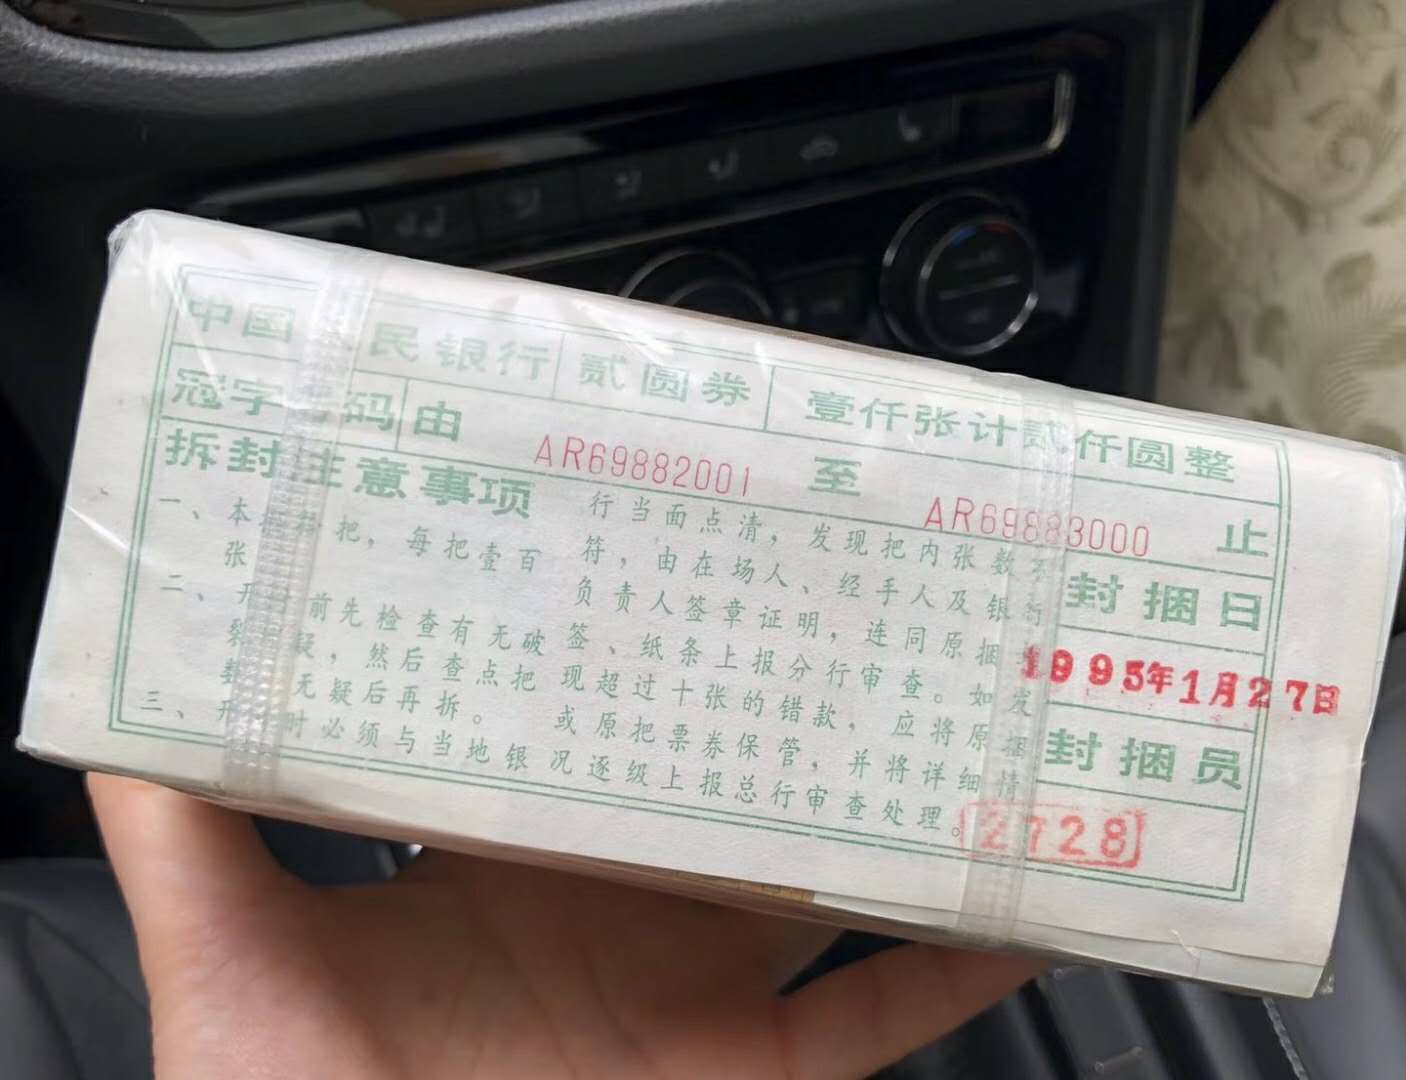 中国 民银行 贰圆券 壹仟张计贰仟圆整
冠字 码 由 AR69882001 至 AR69883000 止
拆封注意事项
一、本 把，每把壹百
张
二、开 前先检查有无破
裂 疑，然后查点把
数 无疑后再拆。
三、开 时必须与当地银
行当面点清，发现把内张数不
符，由在场人、经手人及银行
负责人签章证明，连同原捆封
签、纸条上报分行审查。如发
现超过十张的错款，应将原捆
或原把票券保管，并将详细情
况逐级上报总行审查处理。
封捆日
1995年1月27日
封捆员
2728